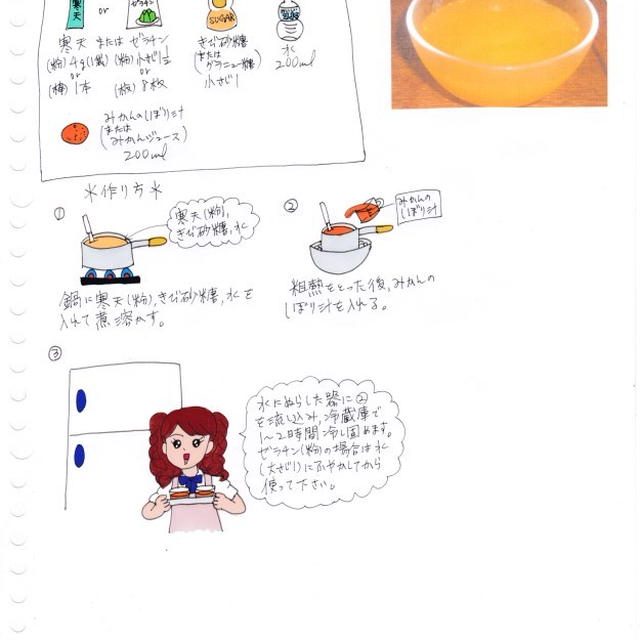 寒天
or
ゼラチン
SUGAR
寒天 または ゼラチン
(粉)4g(1袋) (粉)小さじ1/2
or or
(棒)1本 (板)8枚
きび砂糖
(または
グラニュー糖)
小さじ1
水
200ml
みかんのしぼり汁
(または
みかんジュース)
200ml
*作り方*
①
寒天(粉),
きび砂糖,水
鍋に寒天(粉),きび砂糖,水を
入れて煮溶かす。
②
みかんの
しぼり汁
粗熱をとった後,みかんの
しぼり汁を入れる。
③
水にぬらした器に②
を流し込み,冷蔵庫で
1~2時間冷し固めます。
ゼラチン(粉)の場合は水
(大さじ1)にふやかしてから
使って下さい。